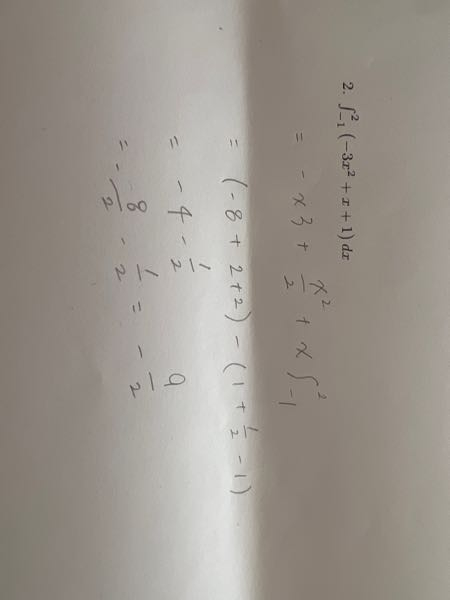 2. ∫₋₁² (−3x² + x + 1) dx
= - x3 + x²/2 + x ∫₋₁²
= (-8 + 2+2) - (1 + 1/2 - 1)
= - 4 - 1/2
= - 8/2 - 1/2 = - 9/2